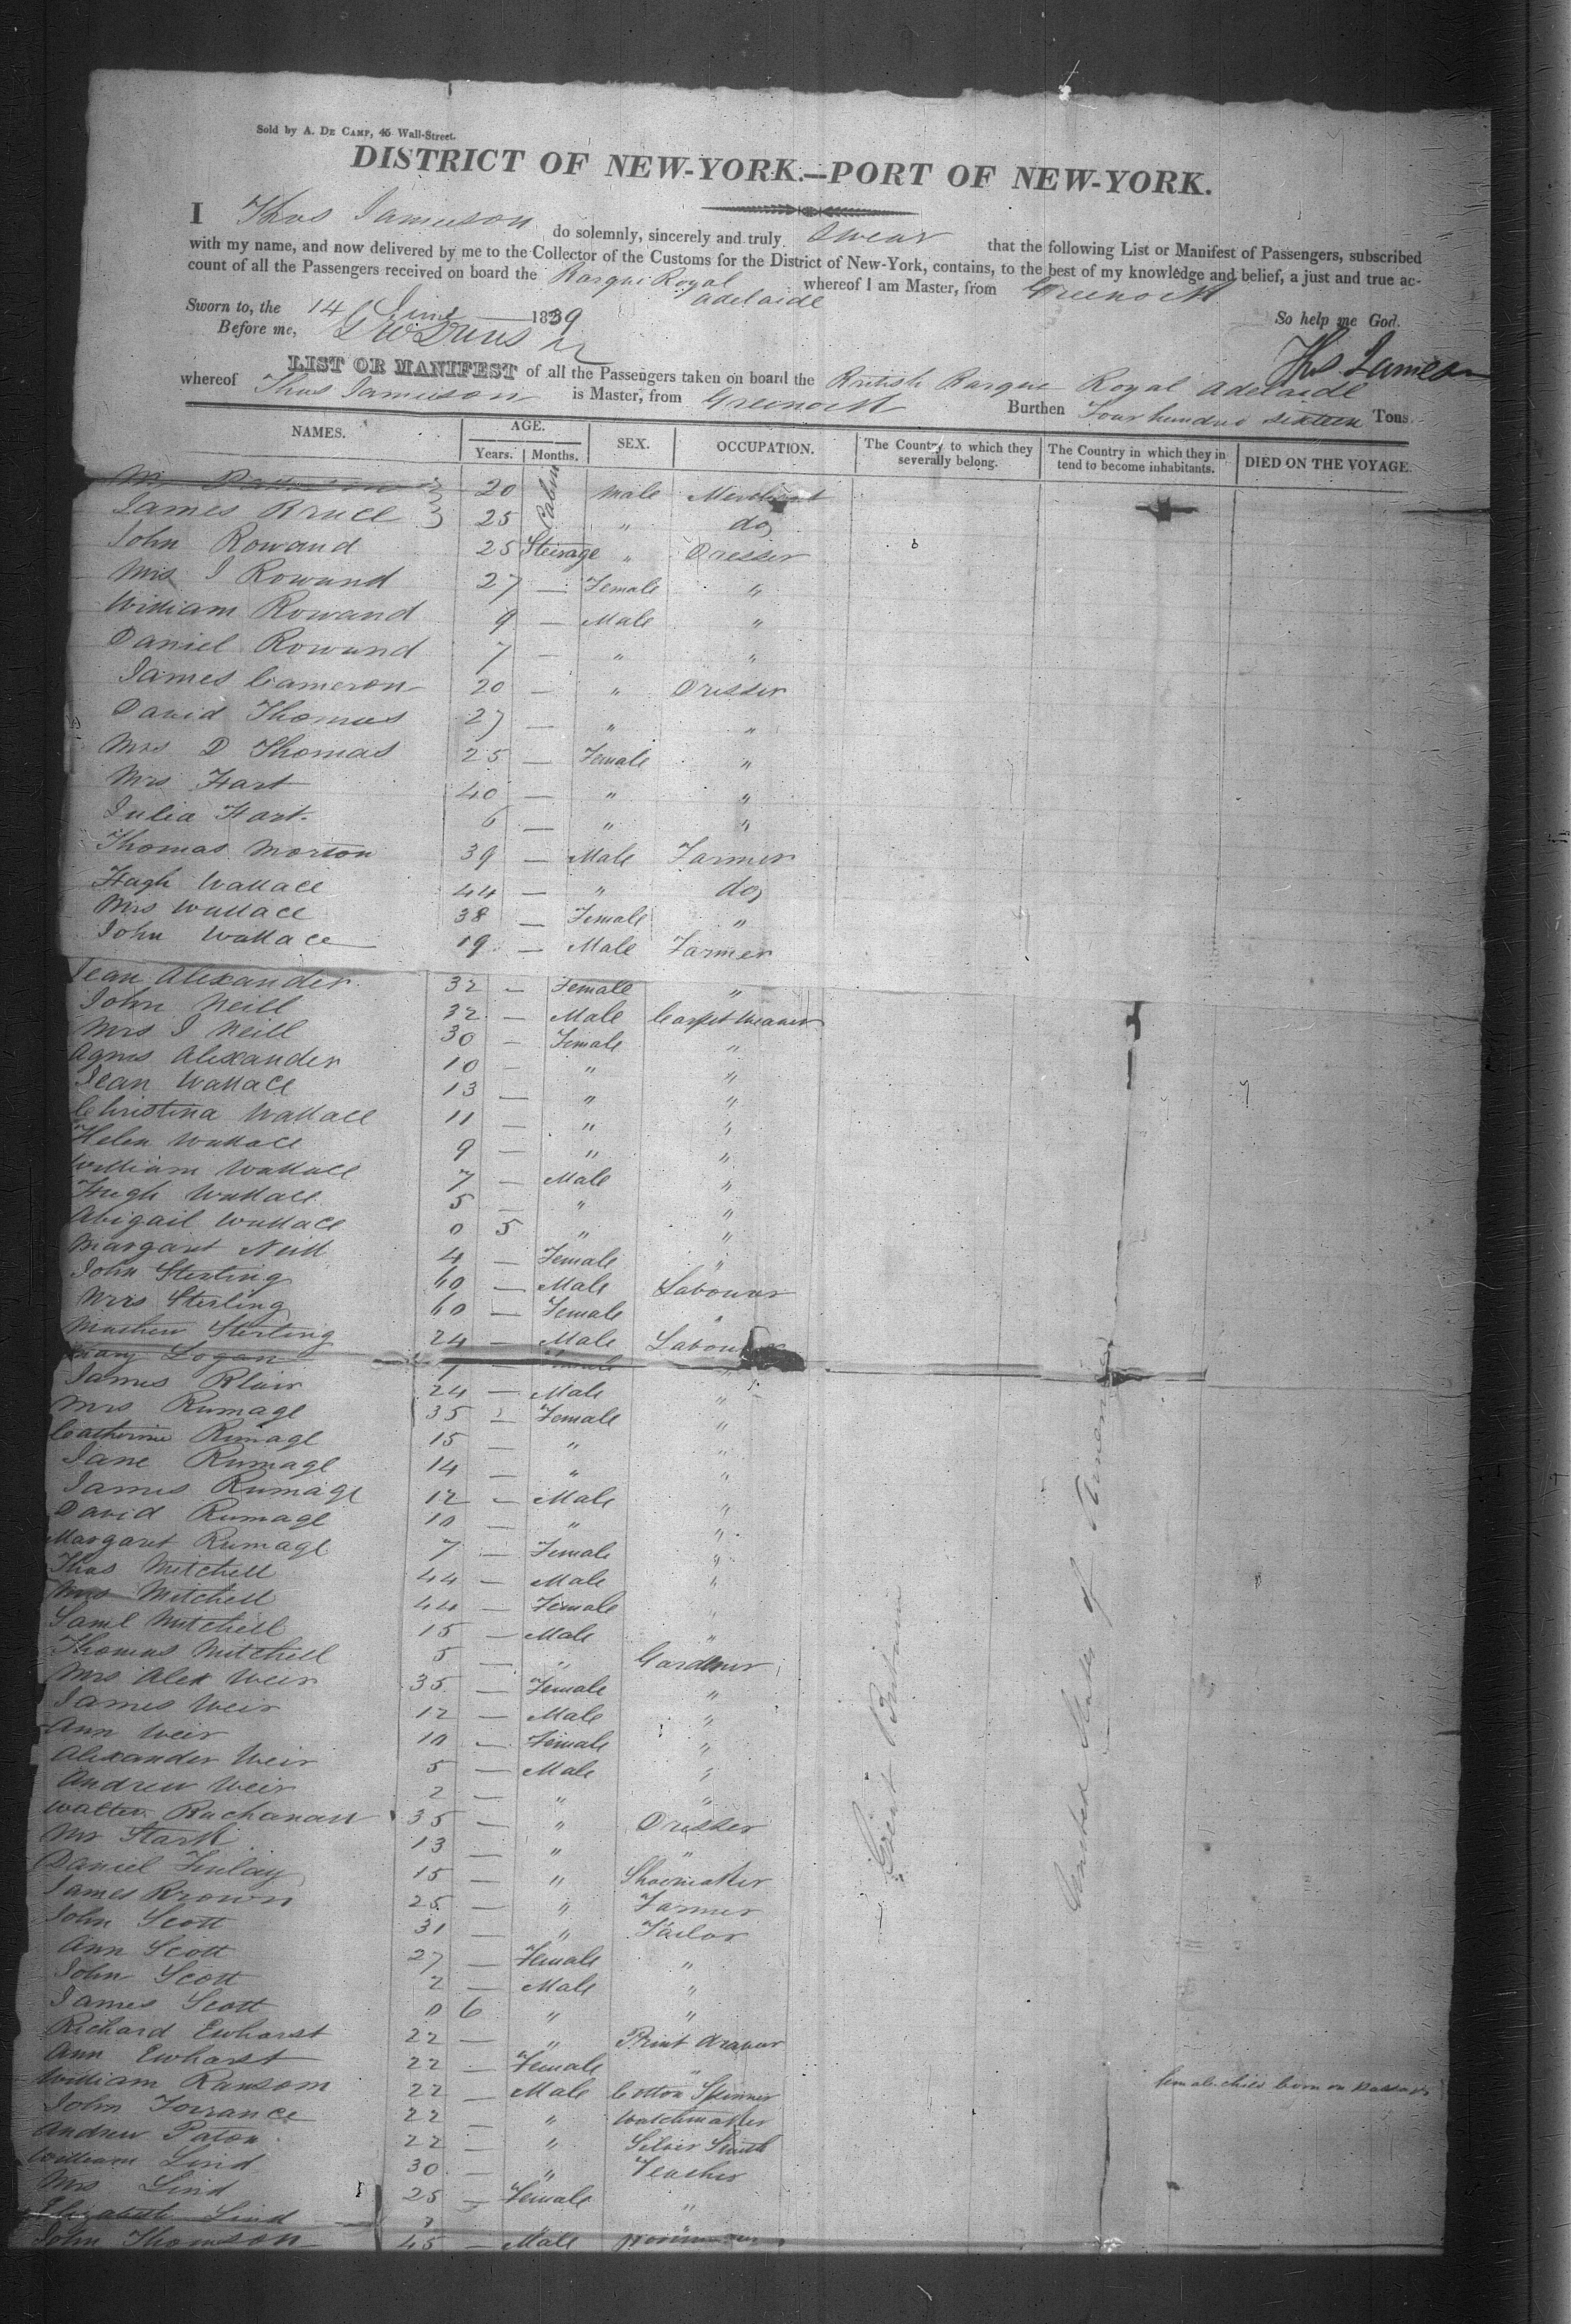 Sold by A. DE CAMP, 45 Wall-Street.
DISTRICT OF NEW-YORK.—PORT OF NEW-YORK.
I Thos Jamieson do solemnly, sincerely and truly Swear that the following List or Manifest of Passengers, subscribed
with my name, and now delivered by me to the Collector of the Customs for the District of New-York, contains, to the best of my knowledge and belief, a just and true ac-
count of all the Passengers received on board the Barque Royal Adelaide whereof I am Master, from Greenock
Sworn to, the 14 June 1839 So help me God.
Before me,
Ths Jameson
LIST OR MANIFEST of all the Passengers taken on board the British Barque Royal Adelaide
whereof Thos Jamieson is Master, from Greenock Burthen Four hundred sixteen Tons.
NAMES. AGE. SEX. OCCUPATION. The Country to which they severally belong. The Country in which they intend to become inhabitants. DIED ON THE VOYAGE.
Years. Months.
20 Cabin Male Merchant
James Bruce 25 " do
John Rowand 25 Steerage " Dresser
Mrs J Rowand 27 — Female "
William Rowand 9 — Male "
Daniel Rowand 7 — " "
James Cameron 20 — " Dresser
David Thomas 27 — " "
Mrs D Thomas 25 — Female "
Mrs Hart 40 — " "
Julia Hart. 6 — " "
Thomas Morton 39 — Male Farmer
Hugh Wallace 44 — " do
Mrs Wallace 38 — Female "
John Wallace 19 — Male Farmer
Jean Alexander 32 — Female "
John Neill 32 — Male Carpet Weaver
Mrs J Neill 30 — Female "
Agnes Alexander 10 — " "
Jean Wallace 13 — " "
Christina Wallace 11 — " "
Helen Wallace 9 — " "
William Wallace 7 — Male "
Hugh Wallace 5 — " "
Abigail Wallace 0 5 " "
Margaret Neill 4 — Female "
John Sterling 60 — Male Labourer
Mrs Sterling 60 — Female "
Mathew Sterling 24 — Male Labourer
Mary Logan
James Blair 24 — Male "
Mrs Rumage 35 — Female "
Catherine Rumage 15 — " "
Jane Rumage 14 — " "
James Rumage 12 — Male "
David Rumage 10 — " "
Margaret Rumage 7 — Female "
Thos Mitchell 44 — Male "
Mrs Mitchell 44 — Female "
Saml Mitchell 15 — Male "
Thomas Mitchell 5 — " Gardner
Mrs Alex Weir 35 — Female "
James Weir 12 — Male "
Ann Weir 10 — Female "
Alexander Weir 5 — Male "
Andrew Weir 2 — " "
Walter Buchanan 35 — " Dresser
Mr Stark 13 — " "
Daniel Finlay 15 — " Shoemaker
James Brown 25 — " Farmer
John Scott 31 — " Tailor
Ann Scott 27 — Female "
John Scott 2 — Male "
James Scott 0 6 " "
Richard Ewharst 22 — " Print
Ann Ewharst 22 — Female "
William Ransom 22 — Male Cotton Spinner female child born on passage
John Torrance 22 — " Watchmaker
Andrew Paton 22 — " Silver Smith
William Lind 30 — " Teacher
Mrs Lind 25 — Female "
Elizabeth Lind
John Thomson 45 — Male
Great Britain
United States of America